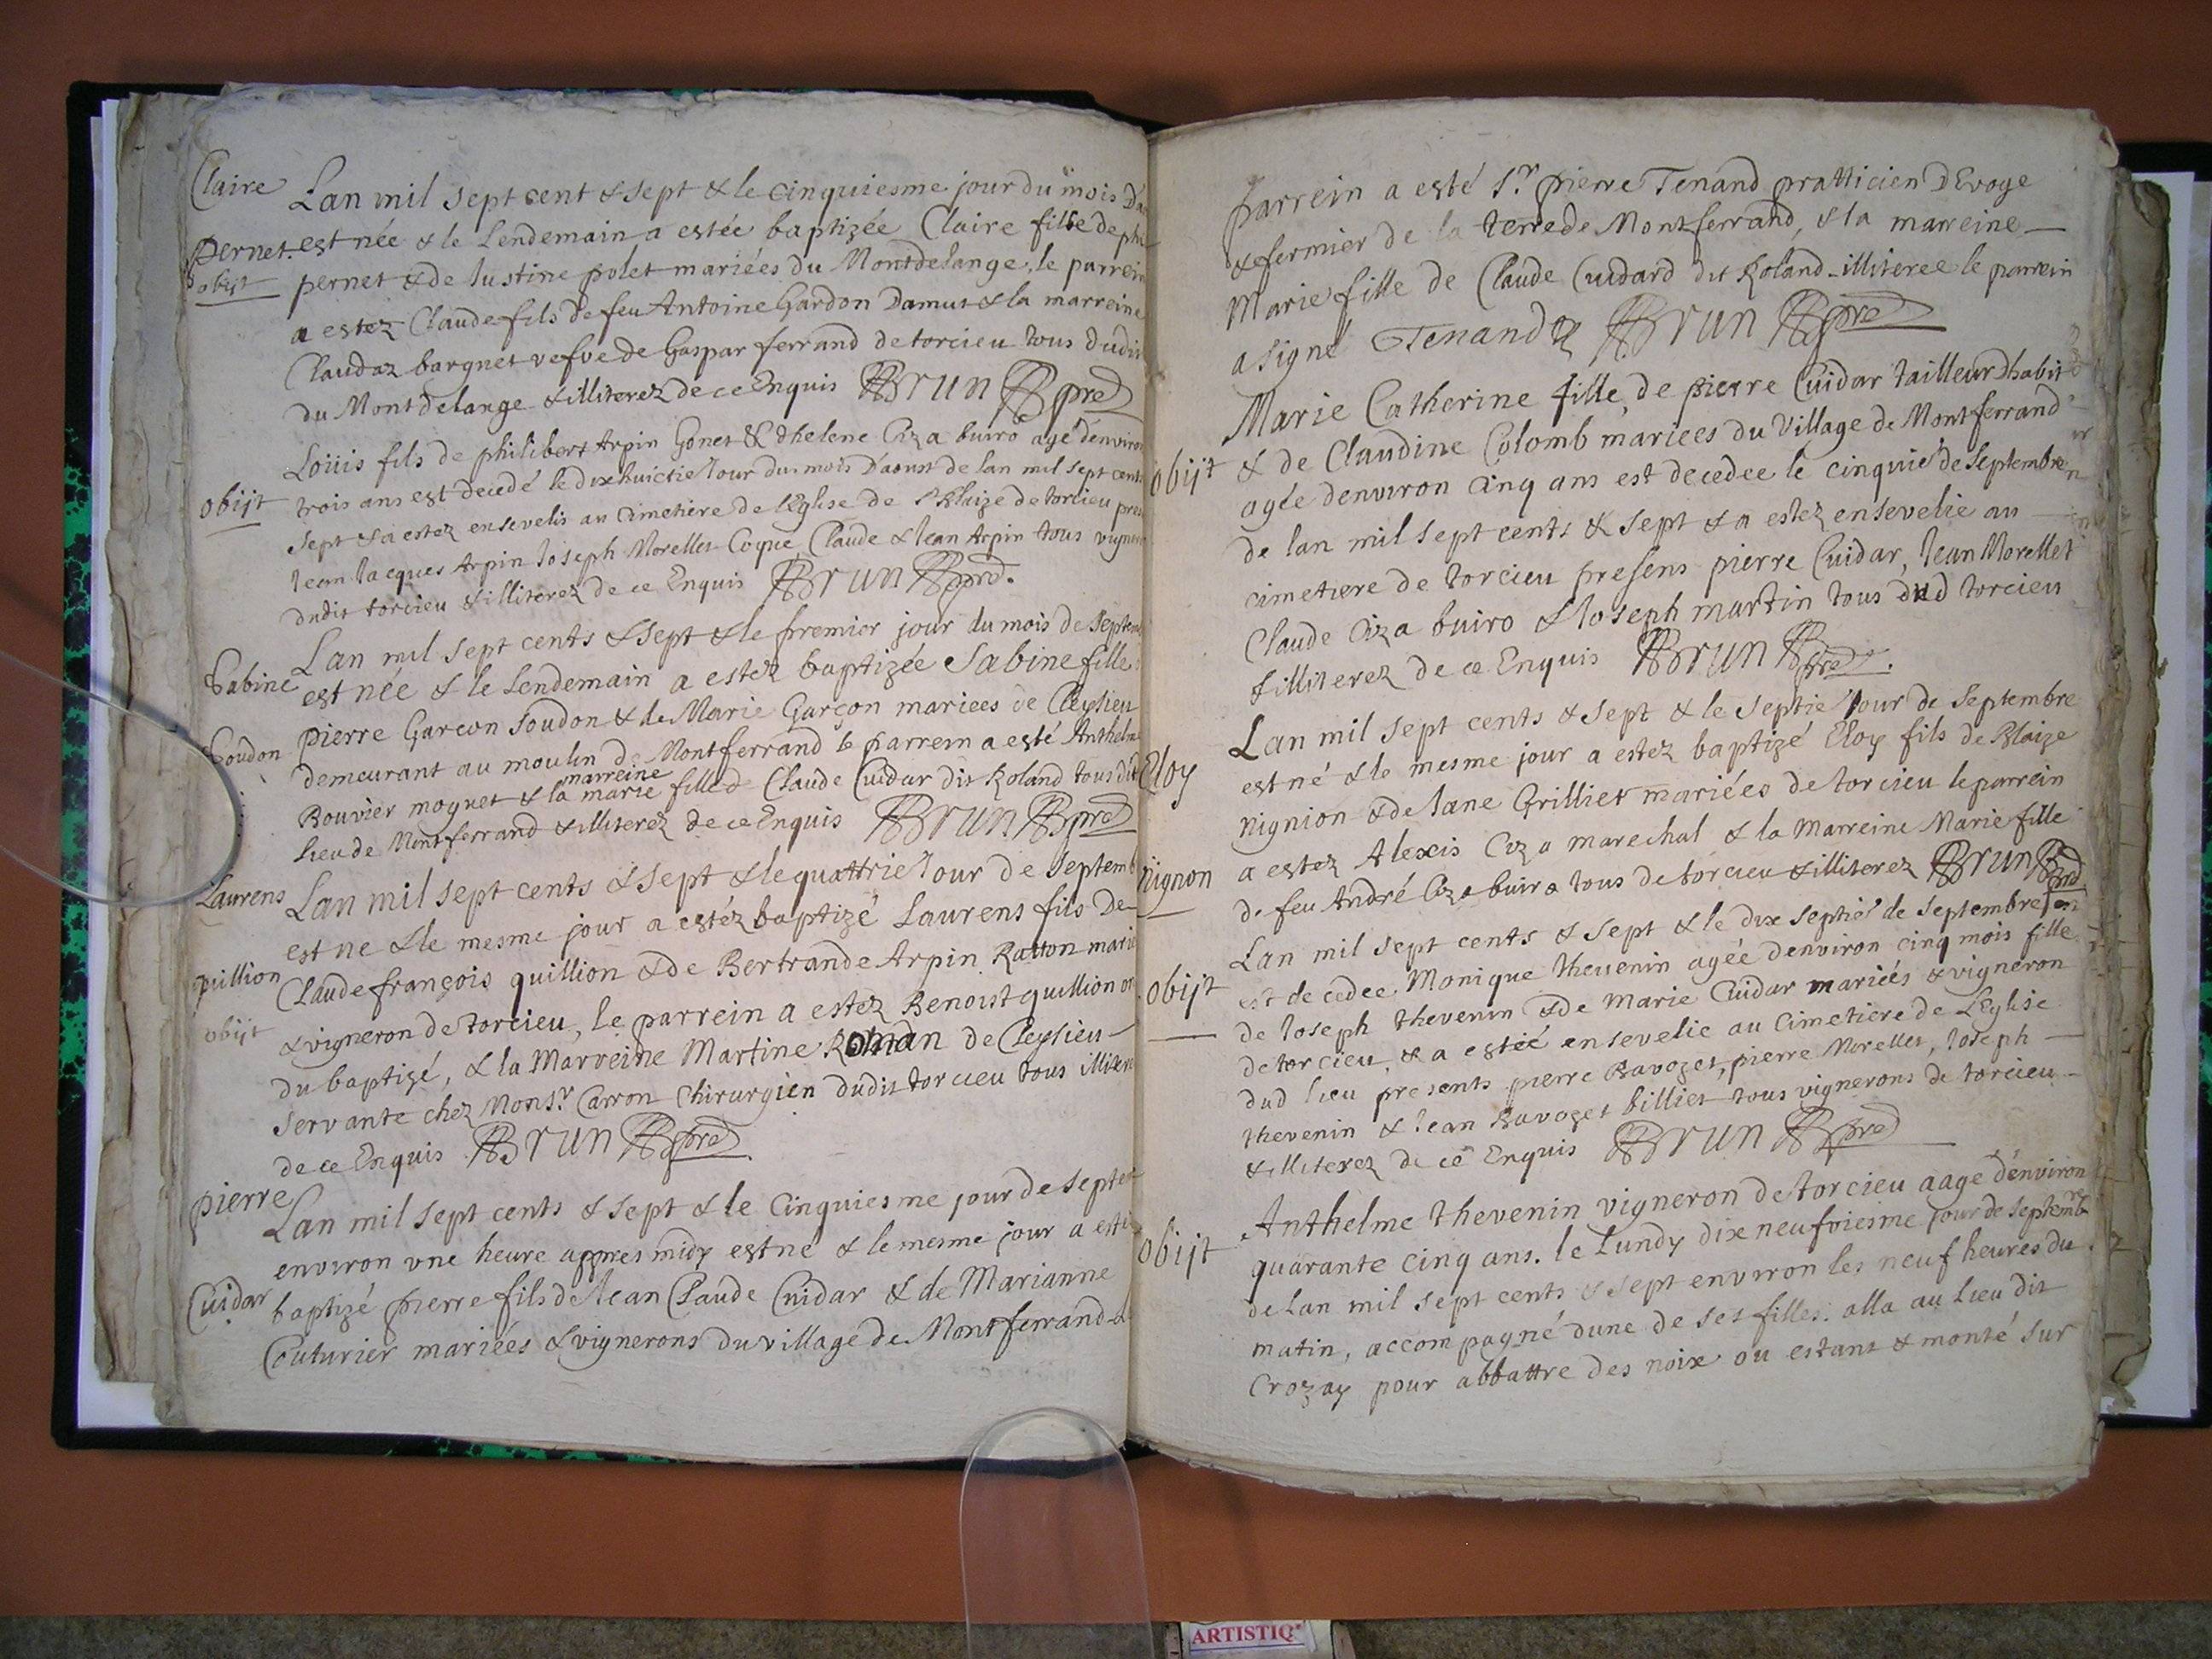 Claire
Lan mil sept cent & sept & le cinquiesme jour du mois Da
pernet. est née & le Lendemain a estée baptizée Claire fille de phi
obijt pernet & de Iustine polet mariées du Montdelange, le parrein
a estez Claude fils de feu Antoine Gardon Damus & la marreine
Claudaz bargnet vefve de Gaspar ferrand de torcieu tous dudit
du Montdelange & illiterez de ce Enquis Brun pre
Loüis fils de philibert Arpin Gonet & dhelene Ciza buiro agé denviron
obijt trois ans est decedé le dixhuictie Iour du mois Daoust de lan mil sept cents
sept & a estez ensevelis au cimetiere de lEglise de St Blaize de torcieu pres
Iean Iacques Arpin Ioseph Morellet Coque, Claude & Iean Arpin tous vigner
dudit torcieu & illiterez de ce Enquis Brun pre.
Lan mil sept cents & sept & le premier jour du mois de Septem
Sabine est née & le Lendemain a estez baptizée Sabine fille
Soudon pierre Garcon Soudon & de Marie Garçon mariees de Cleysieu
demeurant au moulin de Montferrand le parrein a esté Anthelm
marreine
Bouvier moquet & la marie fille d Claude Cuidar dit Roland tous dud
lieu de Montferrand & illiterez de ce Enquis Brun pre
Laurens Lan mil sept cents & sept & le quattrie Iour de Septemb
est ne & le mesme jour a estéz baptizé Laurens fils De
quillion Claude françois quillion & de Bertrande Arpin Ratton marie
obijt & vigneron de torcieu, le parrein a estez Benoist quillion on
du baptizé, & la Marreine Martine Roman de Cleysieu
servante chez Monsr. Carron Chirurgien dudit torcieu tous illiter
de ce Enquis Brun pre.
pierre Lan mil sept cents & sept & le Cinquiesme jour de septem
environ vne heure appres midy est né & le mesme jour a esté
Cuidar baptizé pierre fils de Iean Claude Cuidar & de Marianne
Couturier mariées & vignerons du village de Montferrand &
parrein a esté Sr. pierre Tenand pratticien DEvoge
& fermier de la terre de Montferrand, & la marreine
Marie fille de Claude Cuidard dit Roland illiteree le parrein
a signé Tenand Brun pre
Marie Catherine fille, de pierre Cuidar tailleur Dhabit
obijt & de Claudine Colomb mariees du Village de Montferrand
agée denviron cinq ans est decedee le cinquie de Septembre
de lan mil sept cents & sept & a estez ensevelie au
cimetiere de torcieu presens pierre Cuidar, Iean Morellet
Claude Ciza buiro & Ioseph martin tous dud torcieu
& illiterez de ce Enquis Brun pre.
Lan mil sept cents & sept & le septie Iour de Septembre
Eloy est né & le mesme jour a estez baptizé Eloy fils de Blaize
nignion & de Iane Grilliet mariées de torcieu le parrein
Nignon a estez Alexis Ciza marechal & la Marreine Marie fille
de feu André Ciza buiro tous de torcieu & illiterez Brun pre
Lan mil sept cents & sept & le dix septie de septembre
obijt est decedee Monique thevenin agée denviron cinq mois fille
de Ioseph thevenin & de Marie Cuidar mariés & vigneron
de torcieu, & a estée ensevelie au Cimetiere de LEglise
dud lieu presents pierre Ravozet, pierre Morellet, Ioseph
thevenin & Iean Ravozet billiet tous vignerons de torcieu
& illiterez de ce Enquis Brun pre
Anthelme thevenin vigneron de torcieu aagé denviron
obijt quarante cinq ans. le Lundy dix neufviesme jour de septembre
de Lan mil sept cents & sept environ les neuf heures du
matin, accompagné dune de ses filles. alla au Lieu dit
Crozay pour abbattre des noix ou estant & monté sur
ARTISTIQ